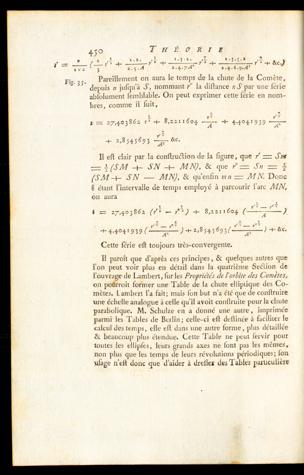 450 THÉORIE
Fig. 35. Pareillement on aura le temps de la chute de la Comète,
depuis n jusqu'à S, nommant r' la distance nS par une série
absolument semblable. On peut exprimer cette série en nom-
bres, comme il suit,
t = 27,403862 r^{3/2} + 8,2211604 r^{5/2}/A + 4,4041939 r^{7/2}/A²
+ 2,8545693 r^{9/2}/A³ &c.
Il est clair par la construction de la figure, que r = Sm
= ½ (SM + SN + MN), & que r' = Sn = ½
(SM + SN — MN), & qu'enfin mn = MN. Donc
t étant l'intervale de temps employé à parcourir l'arc MN,
on aura
t = 27,403862 (r^{3/2} — r'^{3/2}) + 8,2211604 (r^{5/2} — r'^{5/2}/A)
+ 4,4041939 (r^{7/2} — r'^{7/2}/A²) + 2,8545693 (r^{9/2} — r'^{9/2}/A³) + &c.
Cette série est toujours très-convergente.
Il paroît que d'après ces principes, & quelques autres que
l'on peut voir plus en détail dans la quatrième Section de
l'ouvrage de Lambert, sur les Propriétés de l'orbite des Comètes,
on pourroit former une Table de la chute elliptique des Co-
mètes. Lambert l'a fait; mais son but n'a été que de construire
une échelle analogue à celle qu'il avoit construite pour la chute
parabolique. M. Schulze en a donné une autre, imprimée
parmi les Tables de Berlin; celle-ci est destinée à faciliter le
calcul des temps, elle est dans une autre forme, plus détaillée
& beaucoup plus étendue. Cette Table ne peut servir pour
toutes les ellipses, leurs grands axes ne sont pas les mêmes,
non plus que les temps de leurs révolutions périodiques; son
usage n'est donc que d'aider à dresser des Tables particulière